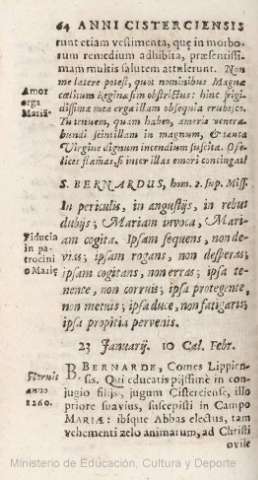 64 ANNI CISTERCIENSIS
runt etiam vestimenta, quę in morbo-
rum remedium adhibita, præsentissi-
mam multis salutem attulerunt. Non
me latere potest, quot nominibus Magnæ
Amor
erga
Mariā.
cælitum Reginæ sim obstrictus: hinc frigi-
dissima mea erga illam obsequia erubesco.
Tu tenuem, quam habeo, ameris venera-
bundi scintillam in magnum, & tanta
Virgine dignum incendium suscita. O fe-
dices flamās, si inter illas emori contingat!
S. BERNARDUS, hom. 2. sup. Miss.
In periculis, in angustijs, in rebus
dubijs; Mariam invoca, Mari-
Fiducia
in pa-
trocini
o Marię
am cogita. Ipsam sequens, non de-
vias; ipsam rogans, non desperas;
ipsam cogitans, non erras; ipsa te-
nente, non corruis; ipsa protegente,
non metuis; ipsa duce, non fatigaris;
ipsa propitia pervenis.
23 Januarij. 10 Cal. Febr.
Floruit
anno
1260.
B. BERNARDE, Comes Lippien-
sis. Qui educatis pijssimè in con-
jugio filijs, jugum Cisterciense, illo
priore suavius, suscepisti in Campo
MARIÆ: ibique Abbas electus, tam
vehementi zelo animarum, ad Christi
ovile
Ministerio de Educación, Cultura y Deporte